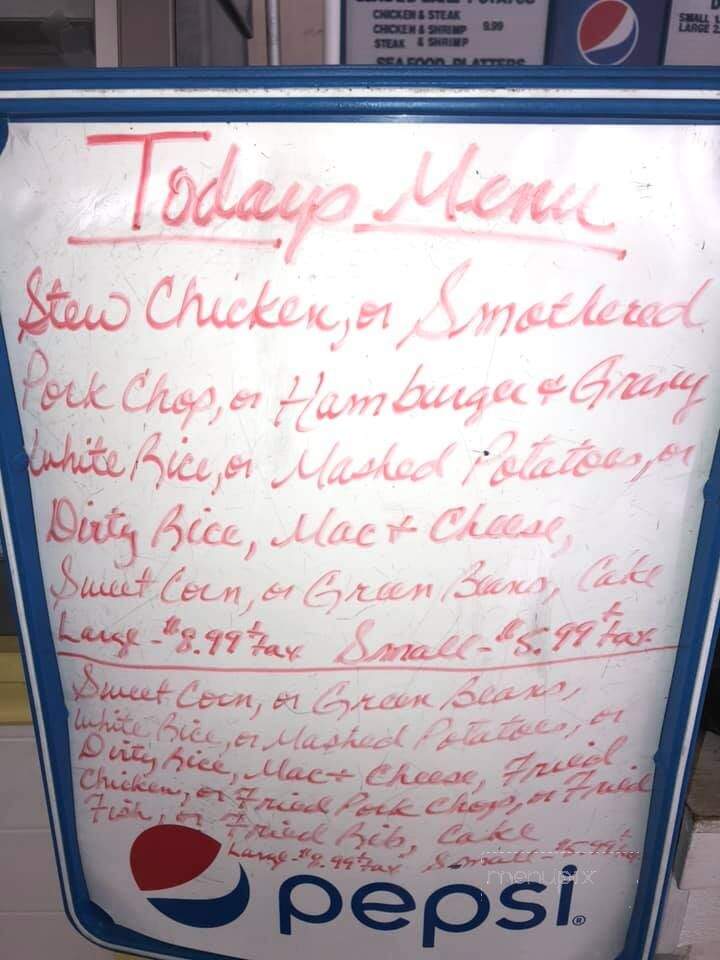 CHICKEN & STEAK
CHICKEN & SHRIMP 9.99
STEAK & SHRIMP
SEAFOOD PLATTERS
SMALL
LARGE 2.
Todays Menu
Stew Chicken, or Smothered
Pork Chop, or Hamburger & Gravy
White Rice, or Mashed Potatoes, or
Dirty Rice, Mac + Cheese,
Sweet Corn, or Green Beans, Cake
Large - $8.99 + tax Small - $5.99 + tax
Sweet Corn, or Green Beans,
White Rice, or Mashed Potatoes, or
Dirty Rice, Mac + Cheese, Fried
Chicken, or Fried Pork Chop, or Fried
Fish, or Fried Rib, Cake
Large - $9.99 + tax Small -
menupix
pepsi®